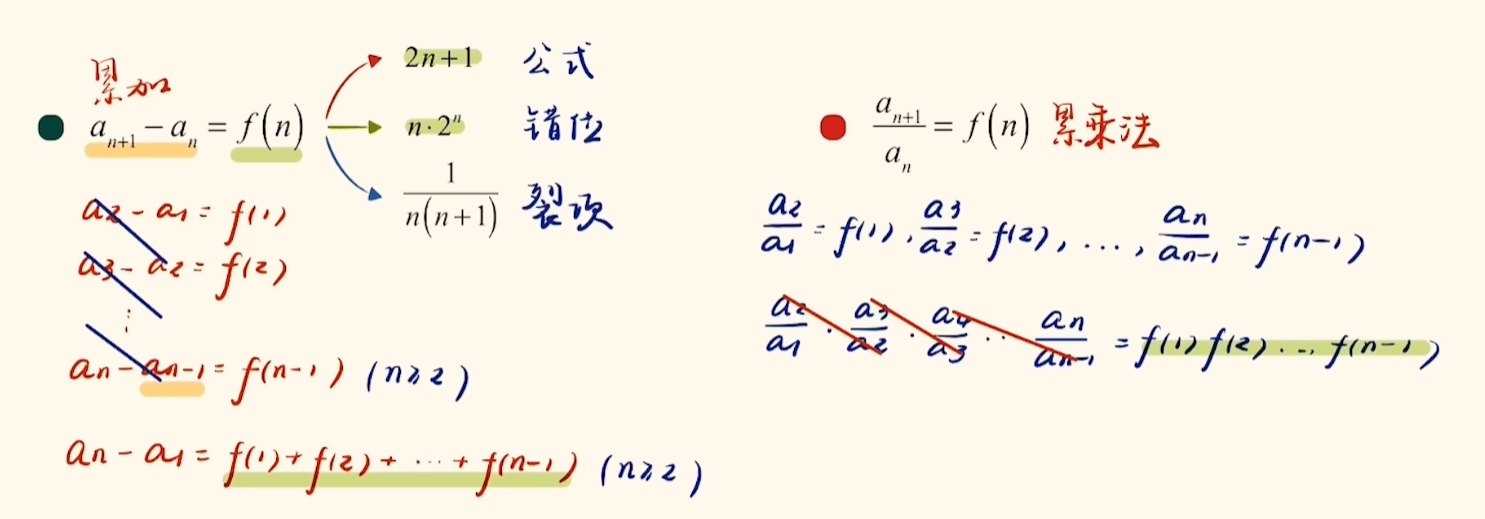 累加
a_{n+1} - a_n = f(n)
2n+1 公式
n·2^n 错位
1/(n(n+1)) 裂项
a2 - a1 = f(1)
a3 - a2 = f(2)
⋮
an - an-1 = f(n-1) (n≥2)
an - a1 = f(1) + f(2) + ··· + f(n-1) (n≥2)
a_{n+1}/a_n = f(n) 累乘法
a2/a1 = f(1), a3/a2 = f(2), ..., an/an-1 = f(n-1)
a2/a1 · a3/a2 · a4/a3 ·· an/an-1 = f(1) f(2) ··· f(n-1)